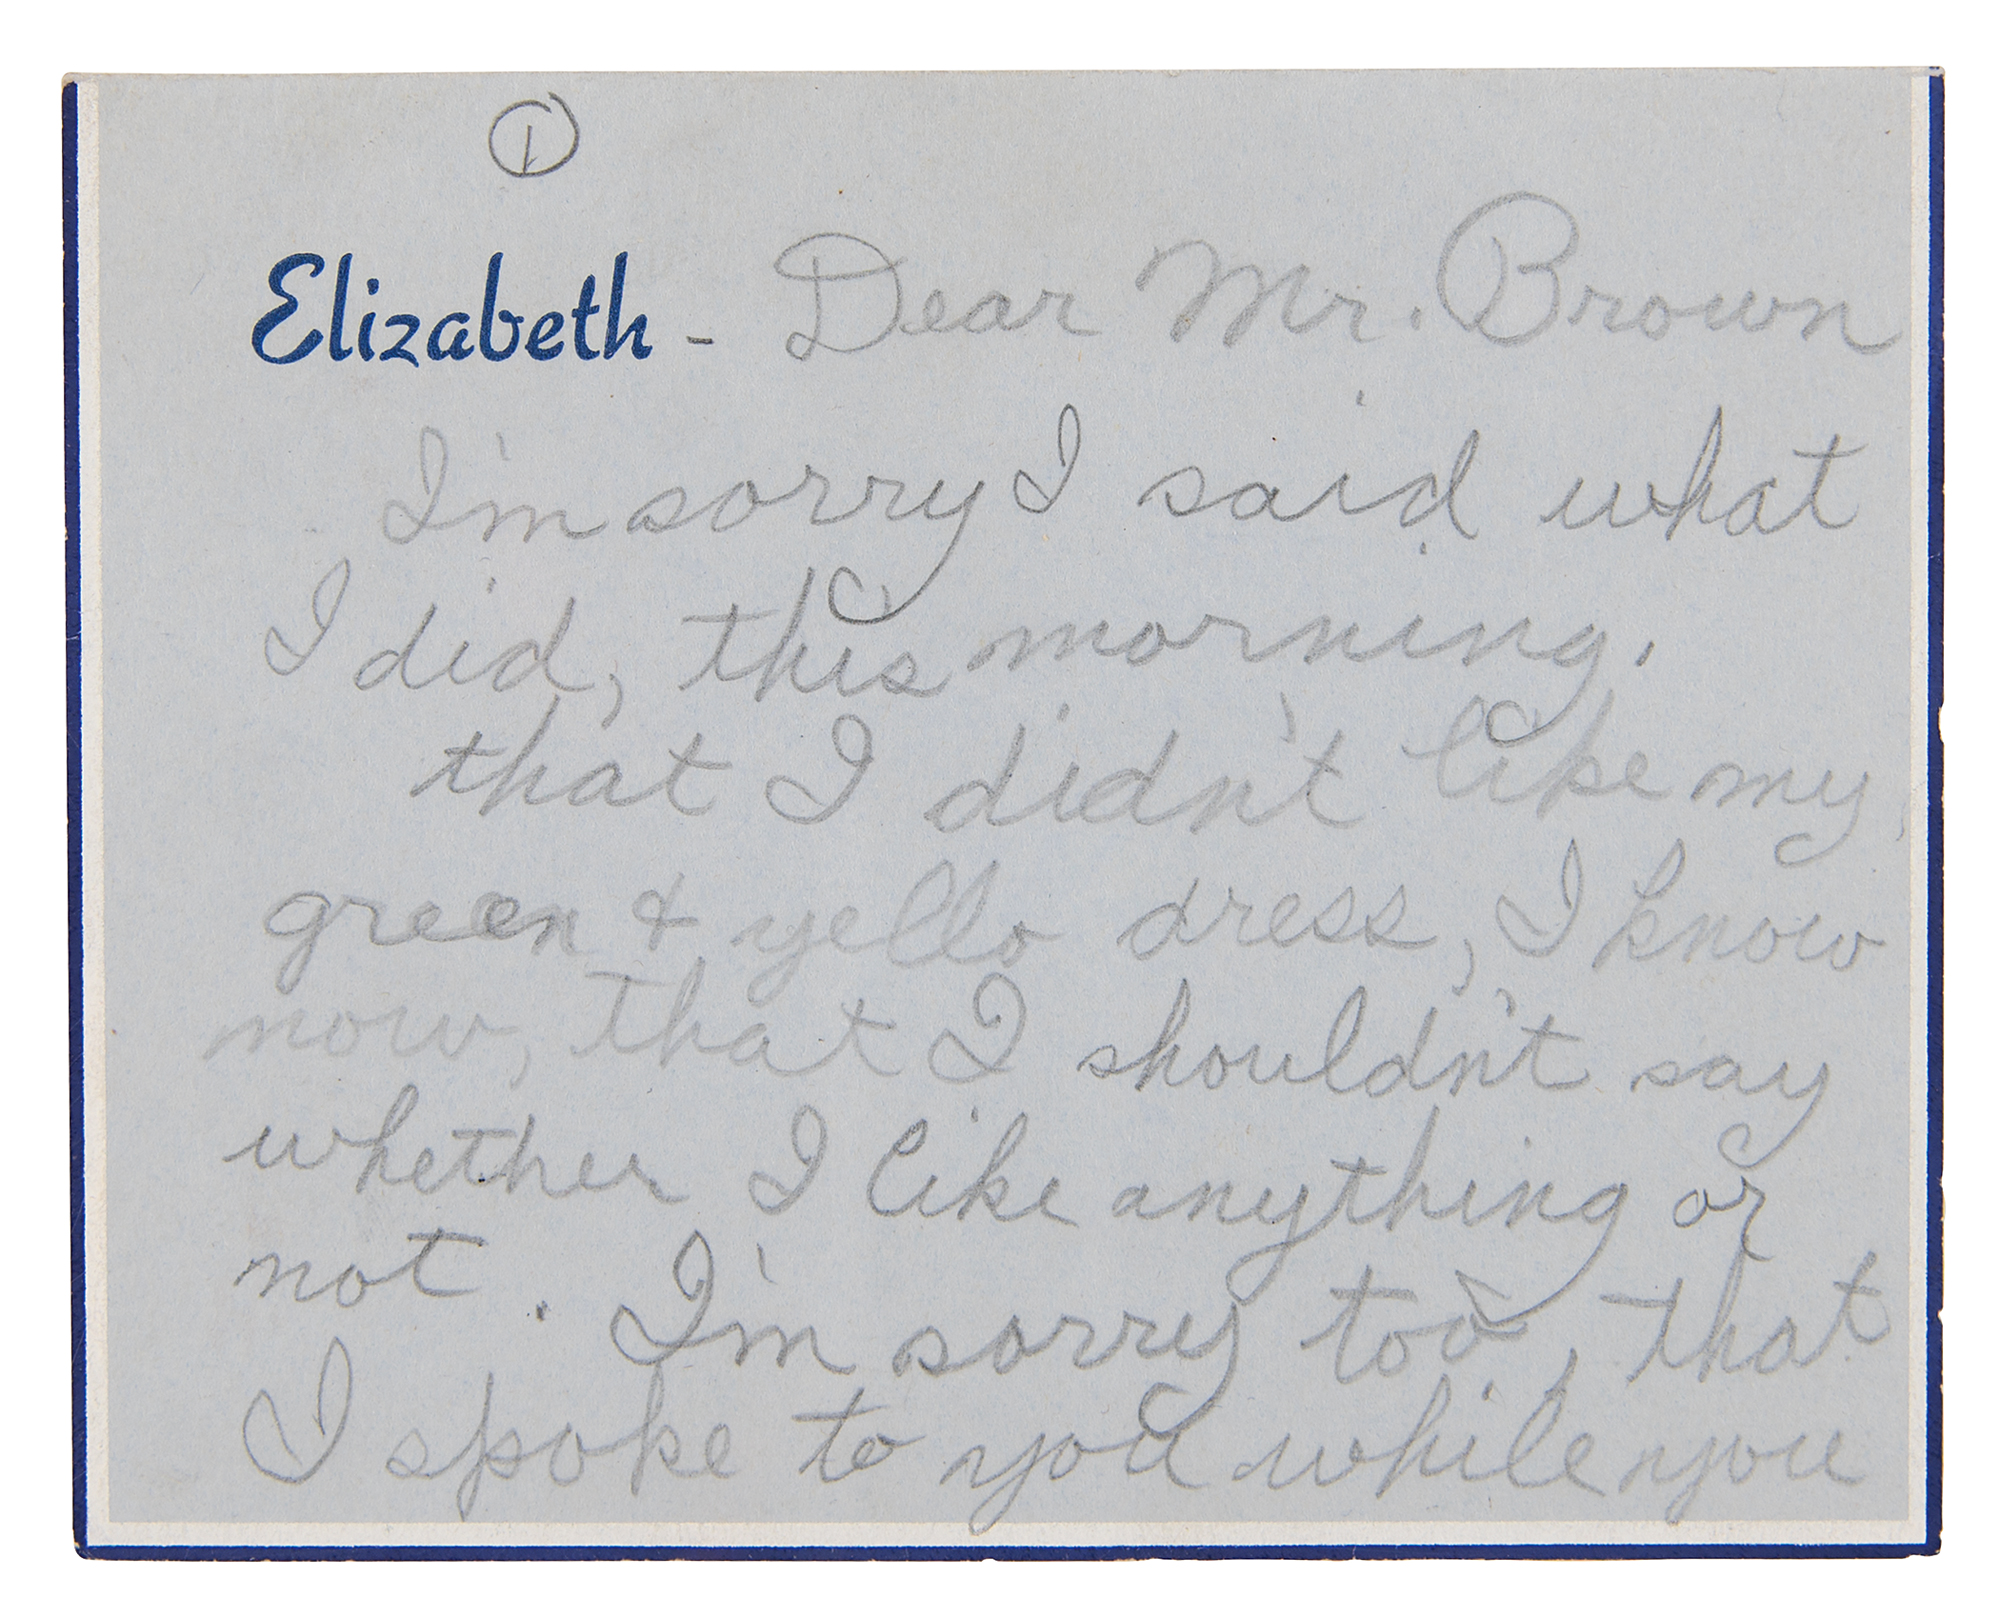 1
Elizabeth - Dear Mr. Brown
I'm sorry I said what
I did, this morning.
that I didn't like my
green & yello dress, I know
now, that I shouldn't say
whether I like anything or
not. I'm sorry too, that
I spoke to you while you